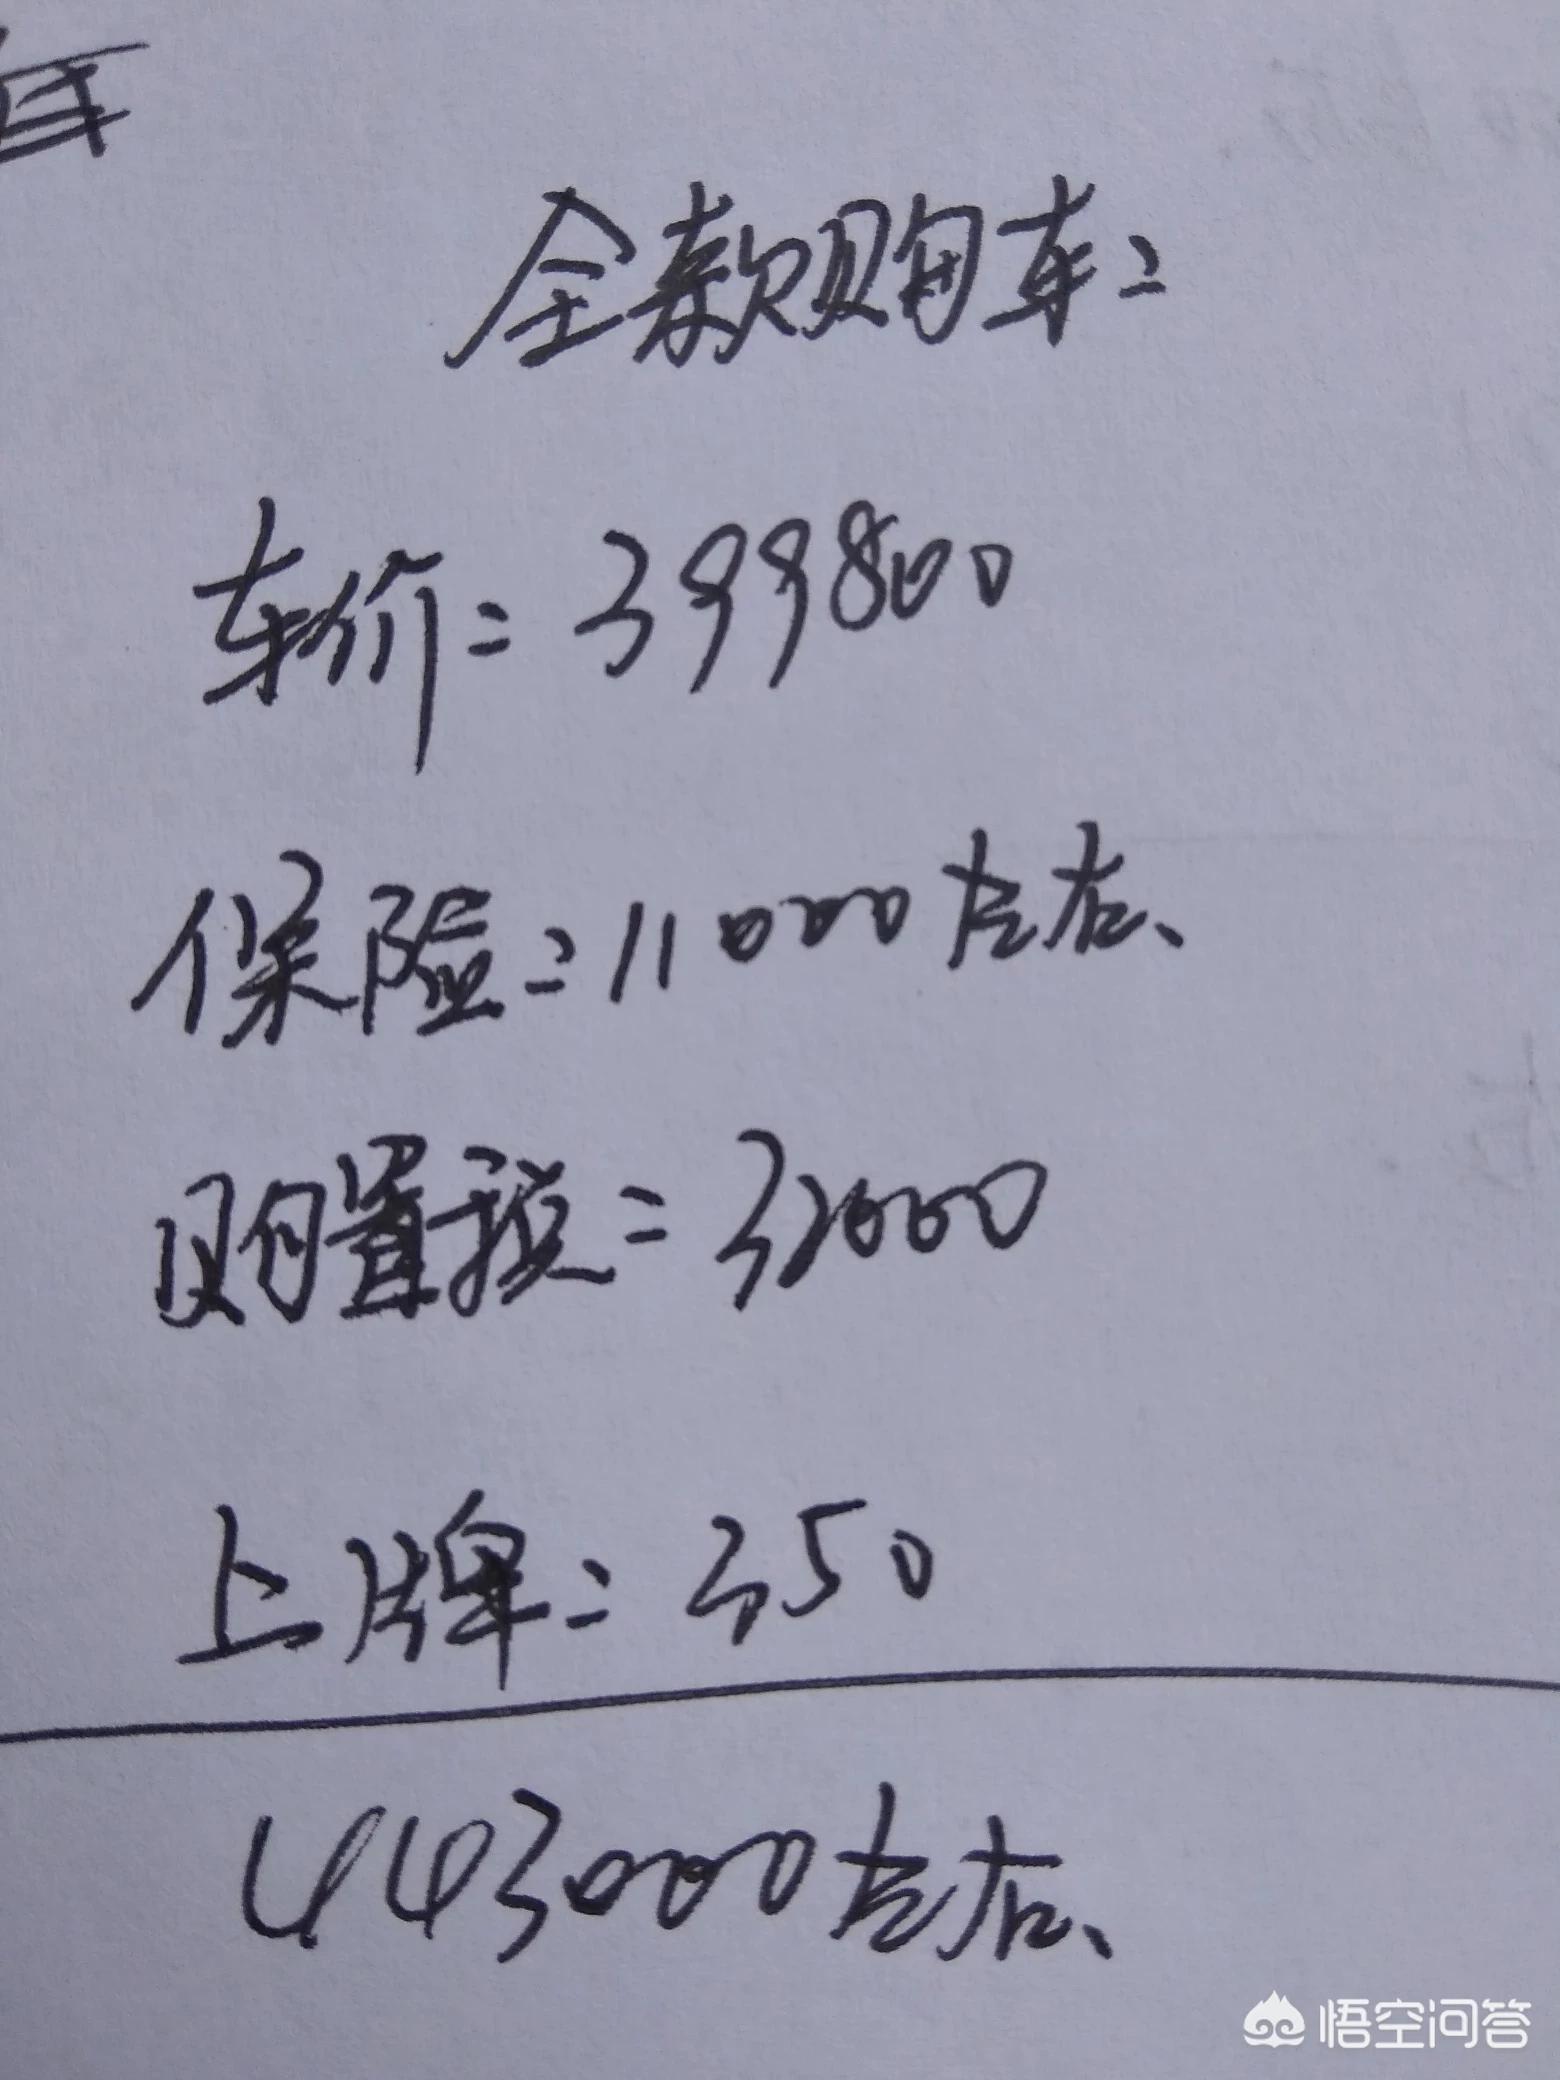 全款购车:
车价: 399800
保险: 11000左右、
购置税: 32000
上牌: 350
443000左右、
悟空问答